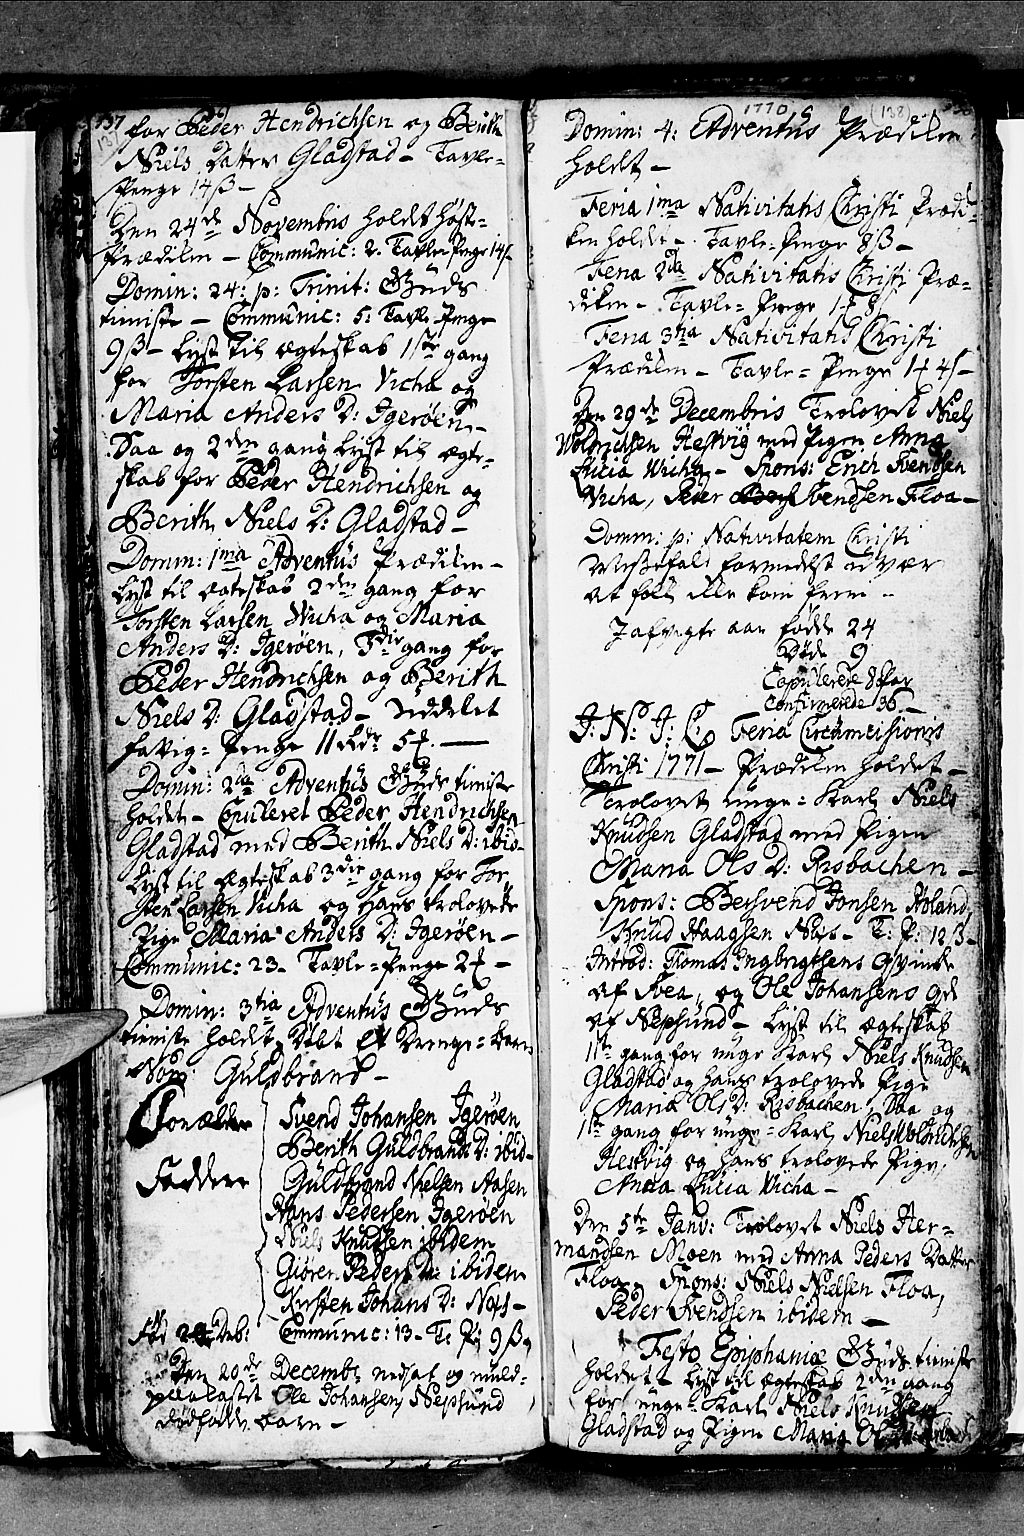 137
for Peder Hendrichsen og Berith
Niels Datter Gladstad - Tavle-
Penge 14 ß -
Den 24de Novembris holdet Høst-
Prædiken - Communic: 2. Tavle-Penge 14 ß
Domin: 24: p: Trinit: Guds
tieniste - Communic: 5: Tavle-Penge
9 ß - Lyst til Ægteskab 1ste gang
for Torsten Larsen Vicha og
Maria Anders D: Igerøen -
Saa og 2den gang lyst til Ægte-
skab for Peder Hendrichsen og
Berith Niels D: Gladstad -
Domin: 1ma Adventus Prædiken -
Lyst til Ægteskab 2den gang for
Torsten Larsen Vicha og Maria
Anders D: Igerøen, 3die gang for
Peder Hendrichsen og Berith
Niels D: Gladstad - uddelet
fattig-Penge 11 Rdr
Domin: 2da Adventus Guds tieniste
holdet - Copuleret Peder Hendrichsen
Gladstad med Berith Niels D: ibid -
Lyst til Ægteskab 3die gang for Tor
sten Larsen Vicha og hans trolovede
Pige Maria Anders D: Igerøen -
Communic: 23 - Tavle-Penge
Domin: 3tia Adventus Guds
tieniste holdet. Døbt et Drenge-Barn
Navn Guldbrand -
Forældre Svend Johansen Igerøen
Berith Guldbrands D: ibid -
Faddere Guldbrand Nielsen Aasen
Hans Pedersen Igerøen
Niels Knudsen ibidem
Peders D: ibidem
Kirsten Johans D: Næs -
Communic: 13 - T: P: 9 ß
Den 20de Decembr nedsat og muld-
paakastet Ole Johansens Nepsund
dødfødde barn -
1770
(138)
Domin: 4: Adventus Prædiken
holdet -
Feria 1ma Nativitatis Christi Prædi-
ken holdet - Tavle-Penge 8 ß -
Feria 2da Nativitatis Christi Præ-
diken - Tavle-Penge
Feria 3tia Nativitatis Christi
Prædiken - Tavle-Penge
Den 29de Decembris Trolovet Niels
Woldrichsen Hestvig med Pigen Anna
Lucia Vicha - Spons: Erich Svendsen
Vicha, Peder Svendsen Floa -
Domin: p: Nativitatem Christi
Messefald formedelst uvær
at folk ikke kom frem -
I afvigte aar fødde 24
Døde 9
Copulerede 8 Par
Confirmerede 36 -
J: N: J: C: Feria Circumcisionis
Christi 1771 - Prædiken holdet -
Trolovet unge-Karl Niels
Knudsen Gladstad med Pigen
Maria Ols D: Risbachen -
Spons: Bersvend Jonsen Høland,
Knud Haagsen Næs - T: P: 12 ß -
Introd: Thomas Ingbrigtsens Qvinde
af Svea, og Ole Johansens Qde
af Nepsund - Lyst til Ægteskab
1ste gang for unge Karl Niels Knudsen
Gladstad og hans trolovede Pige
Maria Ols D: Risbachen, Saa og
1ste gang for unge-Karl Niels Woldrichsen
Hestvig og hans trolovede Pige,
Anna Lucia Vicha -
Den 5te Janv: Trolovet Niels Her-
mandsen Moen med Anna Peders Datter
Floa - Spons: Niels Nielsen Floa,
Peder Svendsen ibidem -
Festo Epiphaniæ Guds tieniste
holdet - Lyst til Ægteskab 2den gang
for unge-Karl Niels Knudsen
Gladstad og Pigen Maria Ols